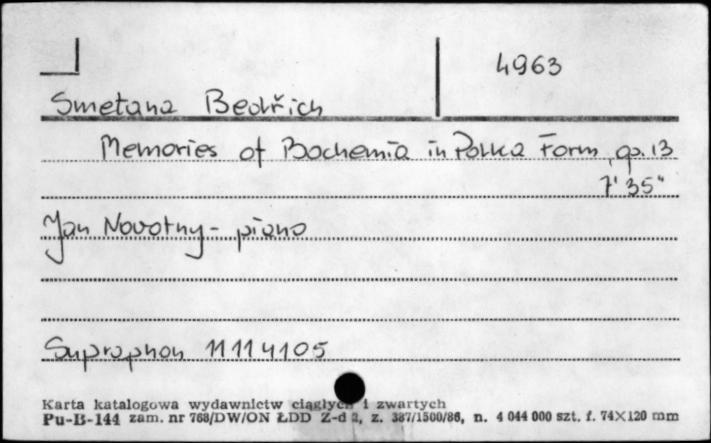 4963
Smetana Bedřich
Memories of Bochemia in Polka Form, op. 13
7'35"
Jan Novotny - piano
Supraphon 11114105
Karta katalogowa wydawnictw ciągłych i zwartych
Pu-B-144 zam. nr 768/DW/ON ŁDD Z-d 2, z. 387/1500/86, n. 4 044 000 szt. f. 74×120 mm